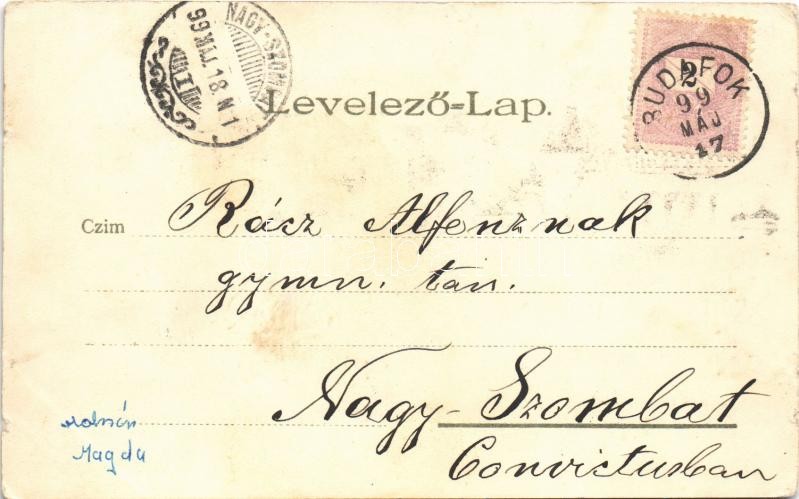 NAGY-SZOM
99 MÁJ. 18. N 1
I
Levelező-Lap.
2
BUDAFOK
99
MÁJ
17
Czim Rácz Alfenznak
gymn. tan.
Nagy-Szombat
Convictusban
Magda